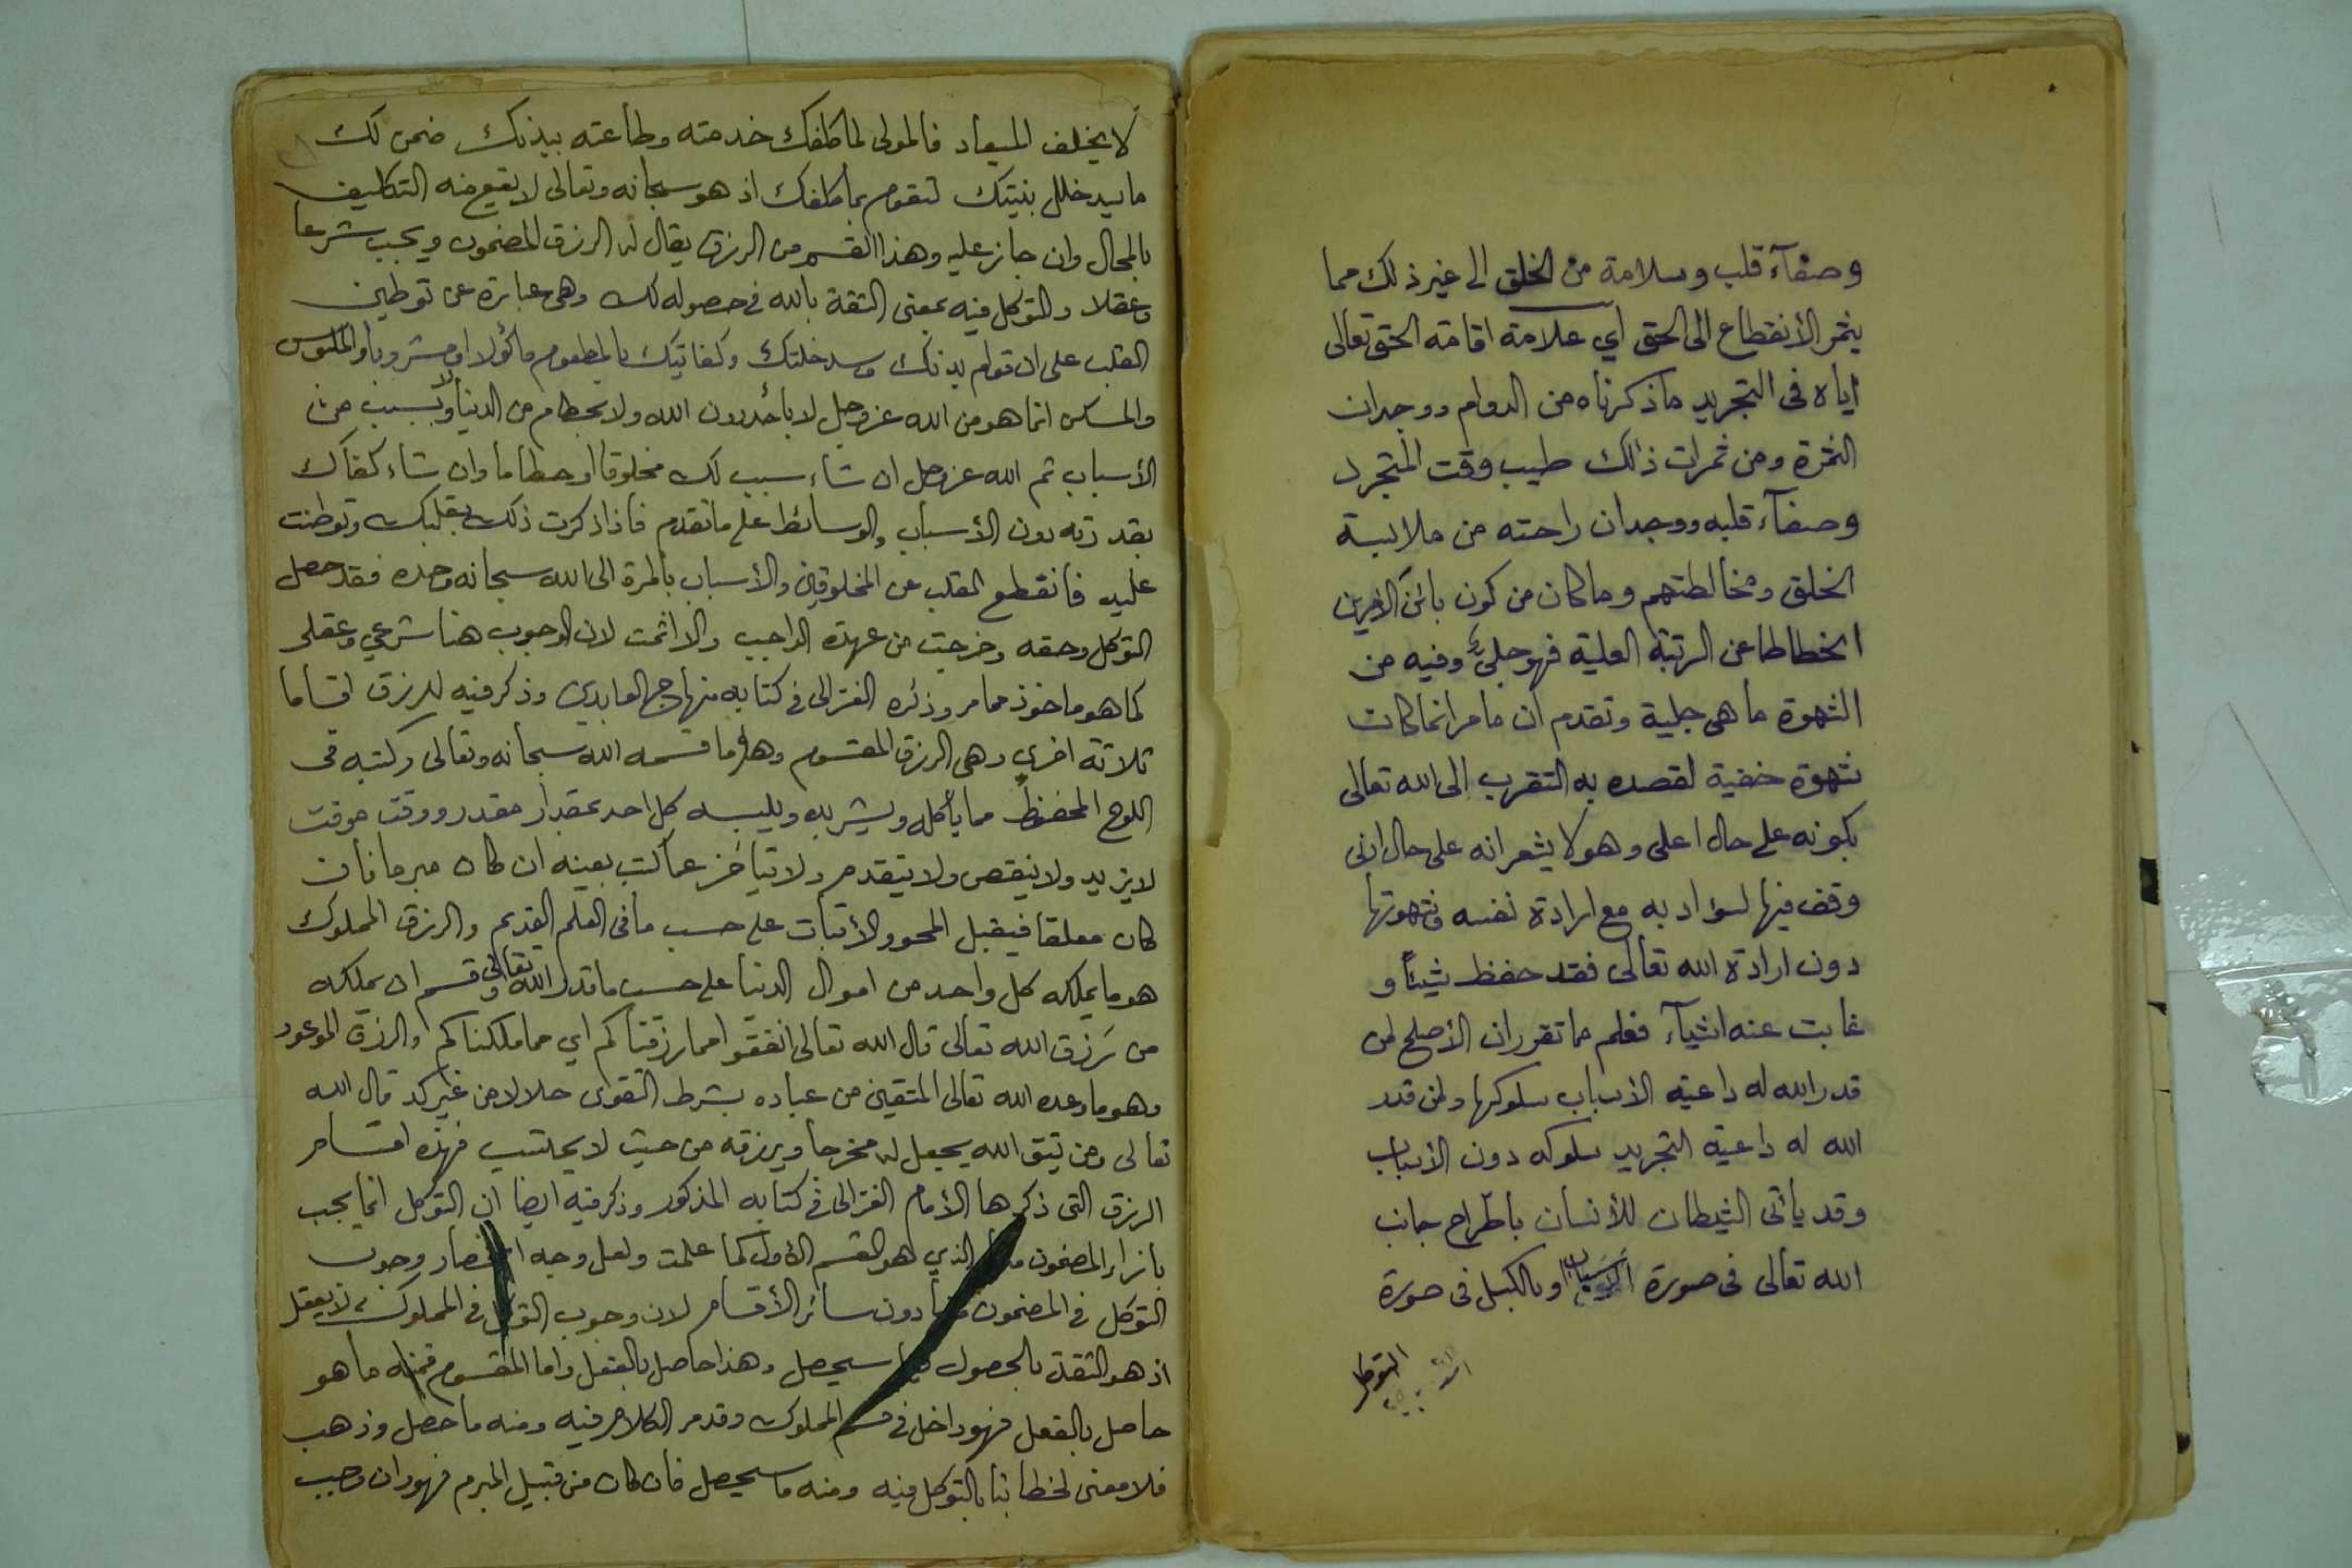 وصفآء قلب وسلامة من الخلق الى غير ذلك مما
يثمر الأنقطاع الى الحق اي علامة اقامة الحق تعالى
اياه فى التجريد ماذكرناه من الدوام ووجدان
الثمرة ومن ثمرات ذالك طيب وقت المتجرد
وصفآء قلبه ووجدان راحته من ملابسة
الخلق ومخالطتهم وما كان من كون
انحطاطا عن الرتبة العلية فهو جليٌ وفيه من
الشهوة ما هى جلية وتقدم ان مامر انما كانت
شهوة خفية لقصده به التقرب الى الله تعالى
بكونه على حال اعلى وهو لا يشعر انه على حال ادنى
وقف فيها لسؤ ادبه مع ارادة نفسه وشهوتها
دون ارادة الله تعالى فقد حفظ شيئاً و
غابت عنه اشيآء فعلم مما تقرر ان الأصلح لمن
قدر الله له داعية الاسباب سلوكها ولمن قدر
الله له داعية التجريد سلوكه دون الأسباب
وقد يأتى الشيطان للأنسان باطراح جانب
الله تعالى فى صورة الاسباب او بالكسل فى صورة
التوكل
لا يخلف الميعاد فالمولى لما كلفك خدمته وطاعته ببدنك ضمن لك
ما يسد خلل بنيتك لتقوم بما كلفك اذ هو سبحانه وتعالى لا يقع منه التكليف
بالمحال وان جاز عليه وهذا القسم من الرزق يقال له الرزق المضمون ويجب شرعا
وعقلا والتوكل فيه بمعنى الثقة بالله فى حصوله لك وهى عبارة عن توطين
القلب على ان قوام بدنك وسد خلتك وكفايتك بالمطعوم مأكولا او مشروبا والملبوس
والمسكن انما هو من الله عز وجل لا بأحد دون الله ولا بحطام من الدنيا ولا بسبب من
الأسباب ثم الله عز وجل ان شاء سبب لك مخلوقا او حطاما وان شاء كفاك
بقدرته دون الأسباب والوسائط على ما تقدم فاذا ذكرت ذلك بقلبك وتوطنت
عليه فانقطع القلب عن المخلوقين والأسباب بالمرة الى الله سبحانه وحده فقد حصل
التوكل وحقه وخرجت من عهدة الواجب والا اثمت لان الوجوب هنا شرعي وعقلي
كما هو ماخوذ مما مر وذكره الغزالى فى كتابه منهاج العابدين وذكر فيه للرزق اقساما
ثلاثة اخرى وهى الرزق المقسوم وهو ما قسمه الله سبحانه وتعالى وكتبه فى
اللوح المحفوظ مما يأكله ويشربه ويلبسه كل احد بمقدار مقدر ووقت موقت
لا يزيد ولا ينقص ولا يتقدم ولا يتأخر عما كتب بعينه ان كان مبرما فان
كان معلقا فيقبل المحو والاثبات على حسب ما فى العلم القديم والرزق المملوك
هو ما يملكه كل واحد من اموال الدنيا على حسب ما قدر الله تعالى وقسم ان يملكه
من رزق الله تعالى قال الله تعالى انفقوا مما رزقناكم اي مما ملكناكم والرزق الموعود
وهو ما وعده الله تعالى المتقين من عباده بشرط التقوى حلالا من غير كد قال الله
تعالى ومن يتق الله يجعل له مخرجا ويرزقه من حيث لا يحتسب فهذه اقسام
الرزق التى ذكرها الأمام الغزالى فى كتابه المذكور وذكر فيه ايضا ان التوكل انما يجب
بازاء المضمون الذي هو القسم الأول كما علمت ولعل وجه انحصار وجوب
التوكل فى المضمون دون سائر الأقسام لان وجوب التوكل فى المملوك لا يعقل
اذ هو الثقة بالحصول سيحصل وهذا حاصل بالفعل واما المقسوم فمنه ما هو
حاصل بالفعل فهو داخل فى قسم المملوك وقد مر الكلام فيه ومنه ما حصل وذهب
فلا معنى لخطابنا بالتوكل فيه ومنه ما سيحصل فان كان من قبيل المبرم فهو وان وجب